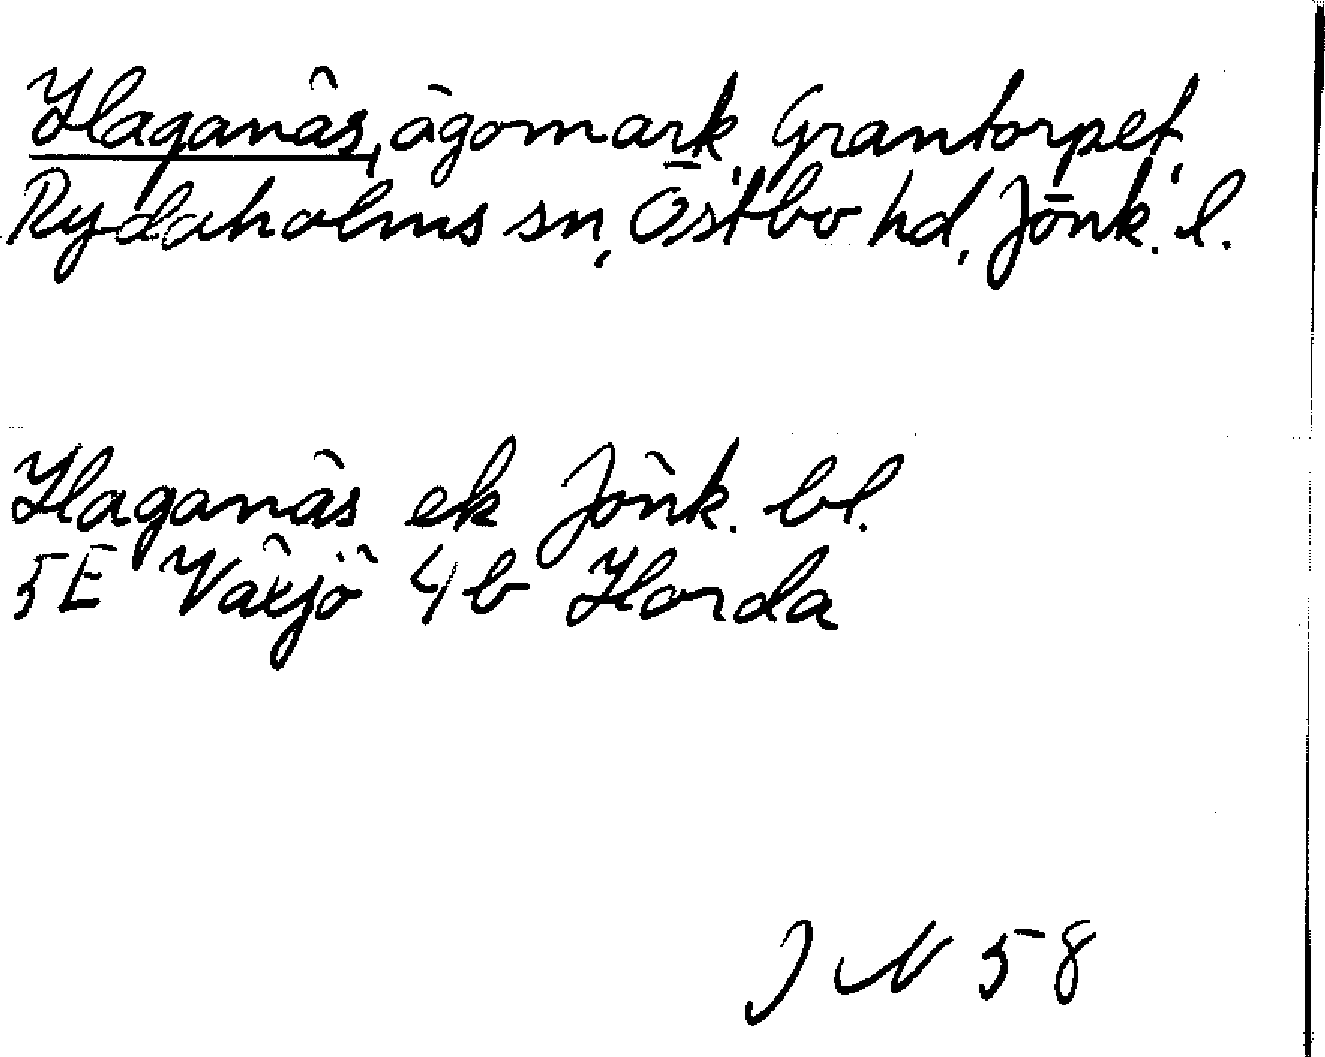 Haganäs, ägomark, Grantorpet,
Rydaholms sn, Östbo hd, Jönk. l.
Haganäs ek Jönk. bl.
5E Växjö 4b Horda
J N 58